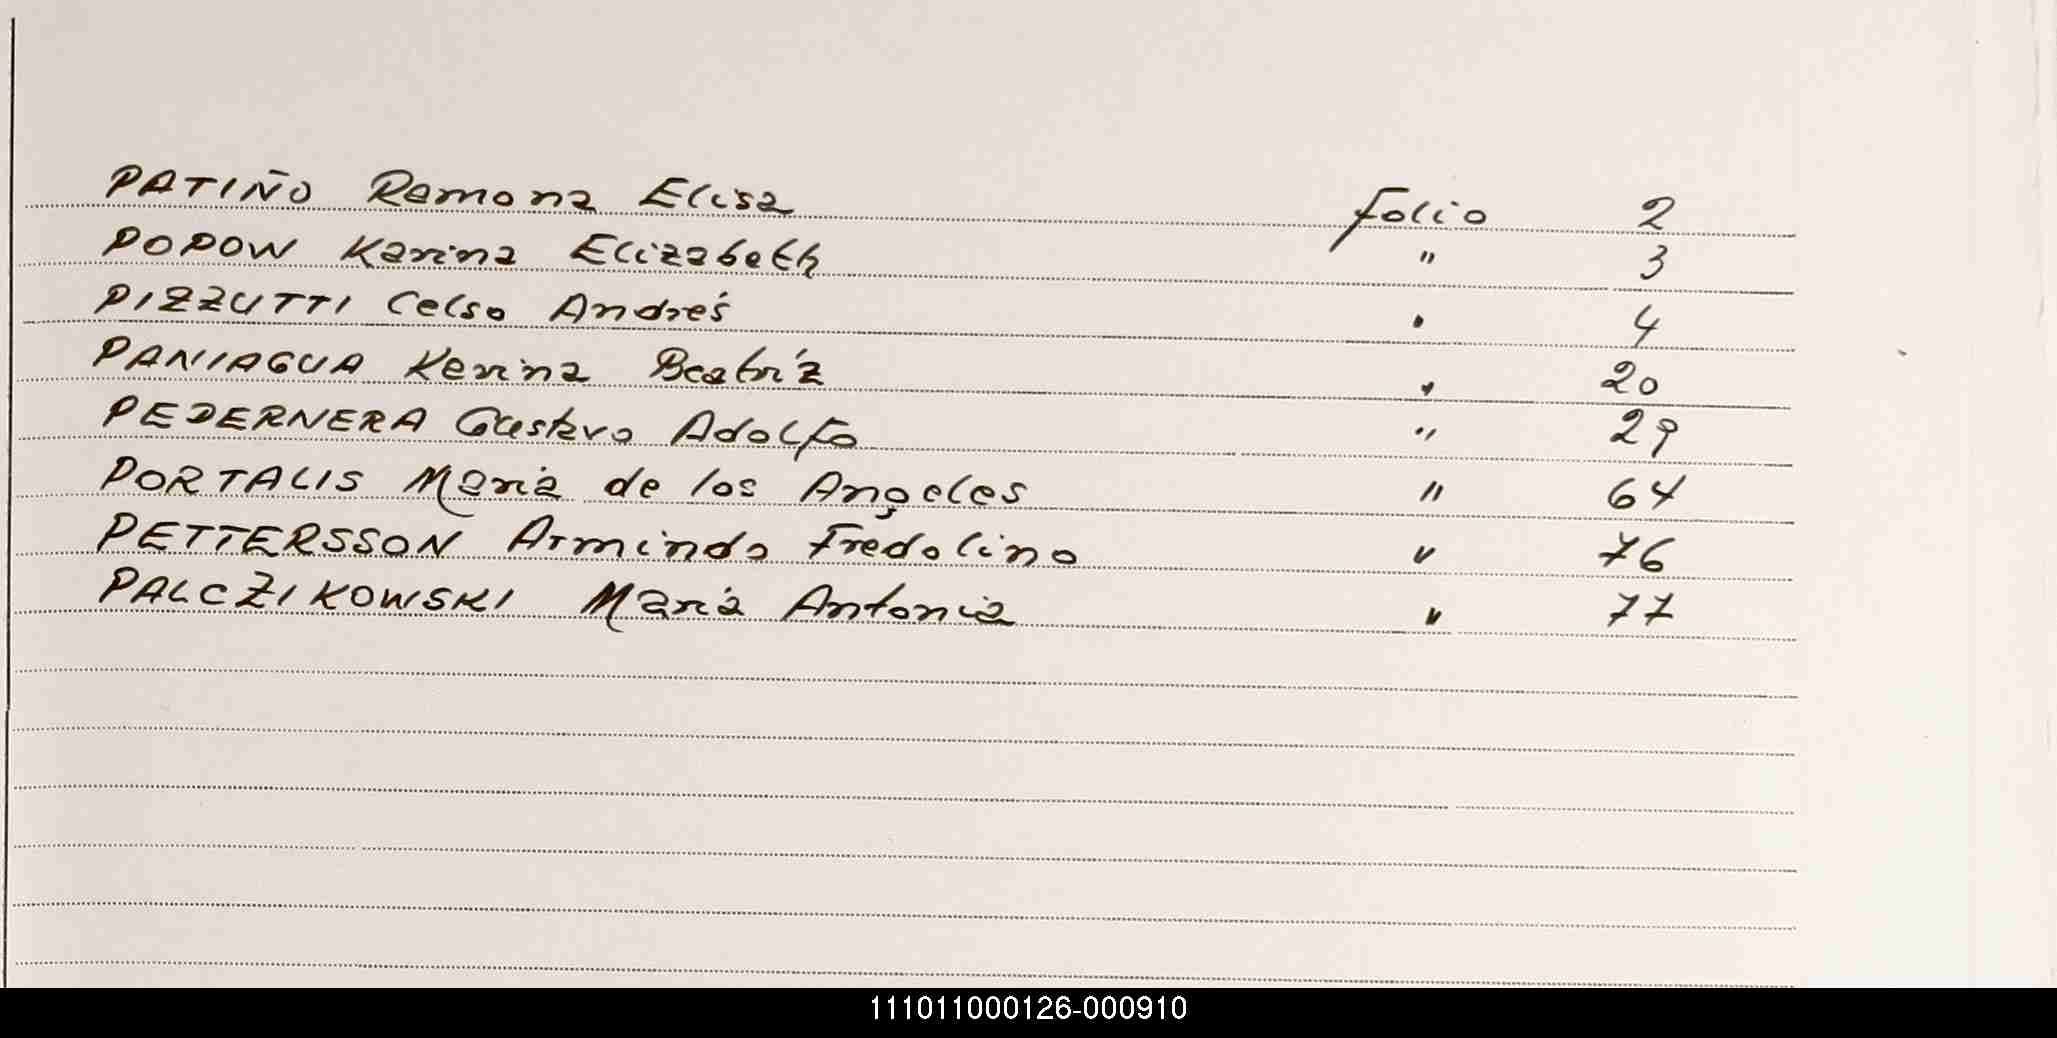 PATIÑO Ramona Elisa folio 2
POPOW Karina Elizabeth " 3
PIZZUTTI Celso Andrés " 4
PANIAGUA Karina Beatríz " 20
PEDERNERA Gustavo Adolfo " 29
PORTALIS María de los Angeles " 64
PETTERSSON Armindo Fredolino " 76
PALCZIKOWSKI María Antonia " 77
111011000126-000910